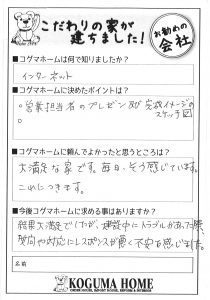 こだわりの家が
建ちました!
お勧めの
会社
■コグマホームは何で知りましたか?
インターネット
■コグマホームに決めたポイントは?
○営業担当者のプレゼン及び完成イメージの
スケッチ図
■コグマホームに頼んでよかったと思うところは?
大満足な家です。毎日、そう感じています。
これにつきます。
■今後コグマホームに求める事はありますか?
結果大満足でしたが、建築中にトラブルがあった際、
質問や対応にレスポンスが悪く不安を感じました。
名前
KOGUMA HOME